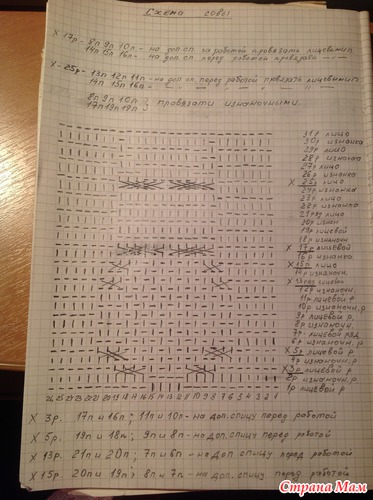 Схема совы
X 17р - 8п 9п 10п - на доп сп. за работой провязать лицевыми
14п 15п 16п - на доп сп перед работой провязать
X - 25р - 13п 12п 11п - на доп сп. перед работой провязать лицевыми.
14п 15п 16п -
8п 9п 10п ; провязати изнаночными.
17п 18п 19п ;
31р лицо
30р изнанка
29р лицо
28р изнанка
27р лицо
26р изнанка
X 25р лицо
24р изнанка
23р лицо
22р изнанка
21 ряд лицо
20р изнан
19р лицевой
18р изнаночн
X 17р лицевой
16р изнанка
X 15р лицо
14р изнаночн.
X 13 ряд лицево
12р изнаночн.
11р лицевой р
10р изнаночн. р
9р лицевой р
8р изнаночн
7р лицевой ряд
6р изнаночн р
X 5р лицевой р
4р изнаночн р
X 3р лицевой р.
2р изнаночн. р
1р лицевой р.
26 25 24 23 22 21 20 19 18 17 16 15 14 13 12 11 10 9 8 7 6 5 4 3 2 1
X 3р. 17п и 16п ; 11п и 10п - на доп. спицу перед работой
X 5р. 19п и 18п ; 9п и 8п - на доп спицу перед работой
X 13р. 21п и 20п ; 7п и 6п - на доп. спицу перед работой
X 15р. 20п и 19п ; 8п и 7п - на доп. спицу перед работой
Страна Мам